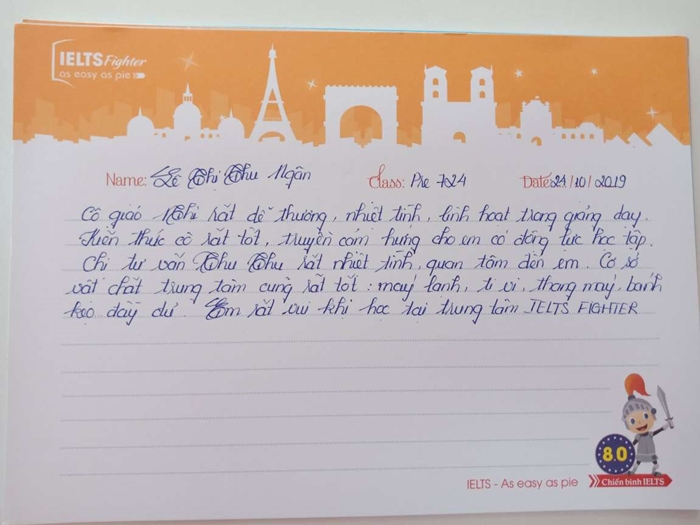 IELTS Fighter
as easy as pie
Name: Lê Thị Thu Ngân Class: Pre 724 Date: 24/10/2019
Cô giáo Nhi rất dễ thương, nhiệt tình, linh hoạt trong giảng dạy.
Kiến thức cô rất tốt, truyền cảm hứng cho em có động lực học tập.
Chị tư vấn Thu Thu rất nhiệt tình, quan tâm đến em. Cơ sở
vật chất trung tâm cũng rất tốt: máy lạnh, ti vi, thang máy, bánh
kẹo đầy đủ. Em rất vui khi học tại trung tâm IELTS FIGHTER
8.0
IELTS - As easy as pie Chiến binh IELTS